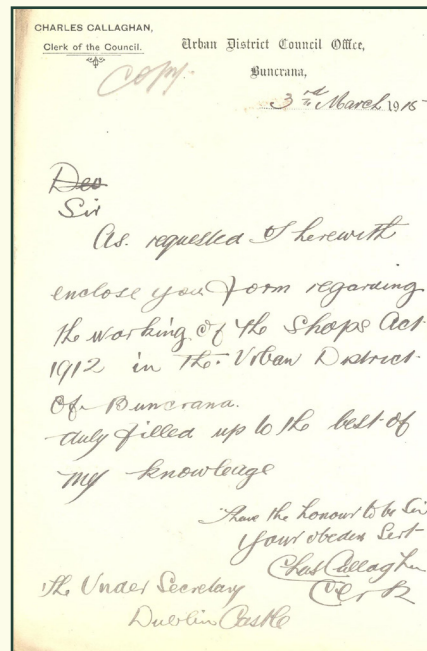 CHARLES CALLAGHAN,
Clerk of the Council.
Urban District Council Office,
Buncrana,
copy.
3rd March 1915
Dea
Sir
As. requested I herewith
enclose you form regarding
the working of the Shops Act
1912 in the Urban District
Of Buncrana.
duly filled up to the best of
my knowledge
I have the honour to be Sir
Your obedien Sert
Chas Callaghan
Clerk
The Under Secretary
Dublin Castle